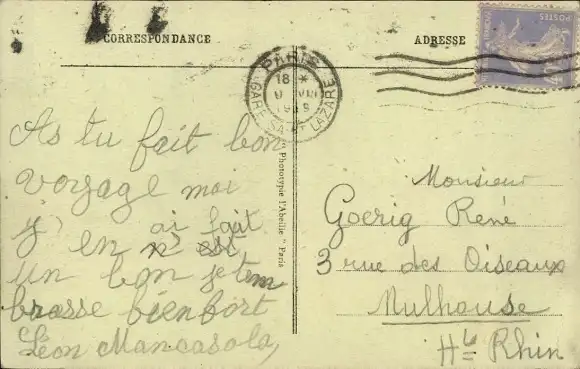 CORRESPONDANCE
ADRESSE
POSTES
PARIS
18
GARE ST LAZARE
As tu fait bon
voyage moi
j'en ai fait
un bon je tem
brasse bien fort
Léon Mancasola,
" Phototypie l'Abeille " Paris
Monsieur
Goerig René
3 rue des Oiseaux
Mulhouse
Ht Rhin